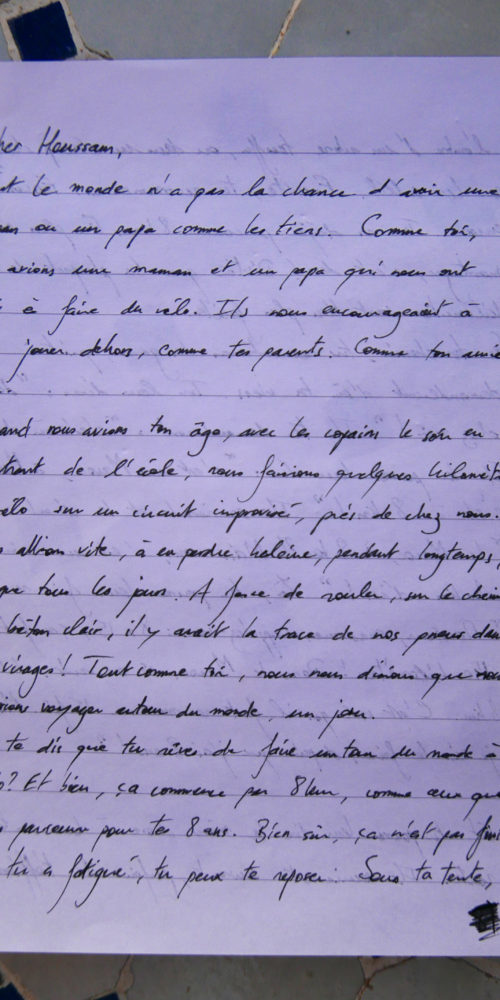 her Houssam,
t le monde n'a pas la chance d'avoir une
an ou un papa comme les tiens. Comme toi,
avions une maman et un papa qui nous ont
à faire du vélo. Ils nous encourageaient à
jouer dehors, comme tes parents. Comme ton amie
and nous avions ton âge, avec les copains le soir en
trant de l'école, nous faisions quelques kilomèt
élo sur un circuit improvisé, près de chez nous.
allions vite, à en perdre haleine, pendant longtemps,
que tous les jours. A force de rouler, sur le chem
béton clair, il y avait la trace de nos pneus dan
virages! Tout comme toi, nous nous disions que nous
voyager autour du monde, un jour.
te dis que tu rêves de faire un tour du monde à
? Et bien, ça commence par 8 km, comme ceux que
parcouru pour tes 8 ans. Bien sûr, ça n'est pas fini
tu a fatigué, tu peux te reposer. Sous ta tente,